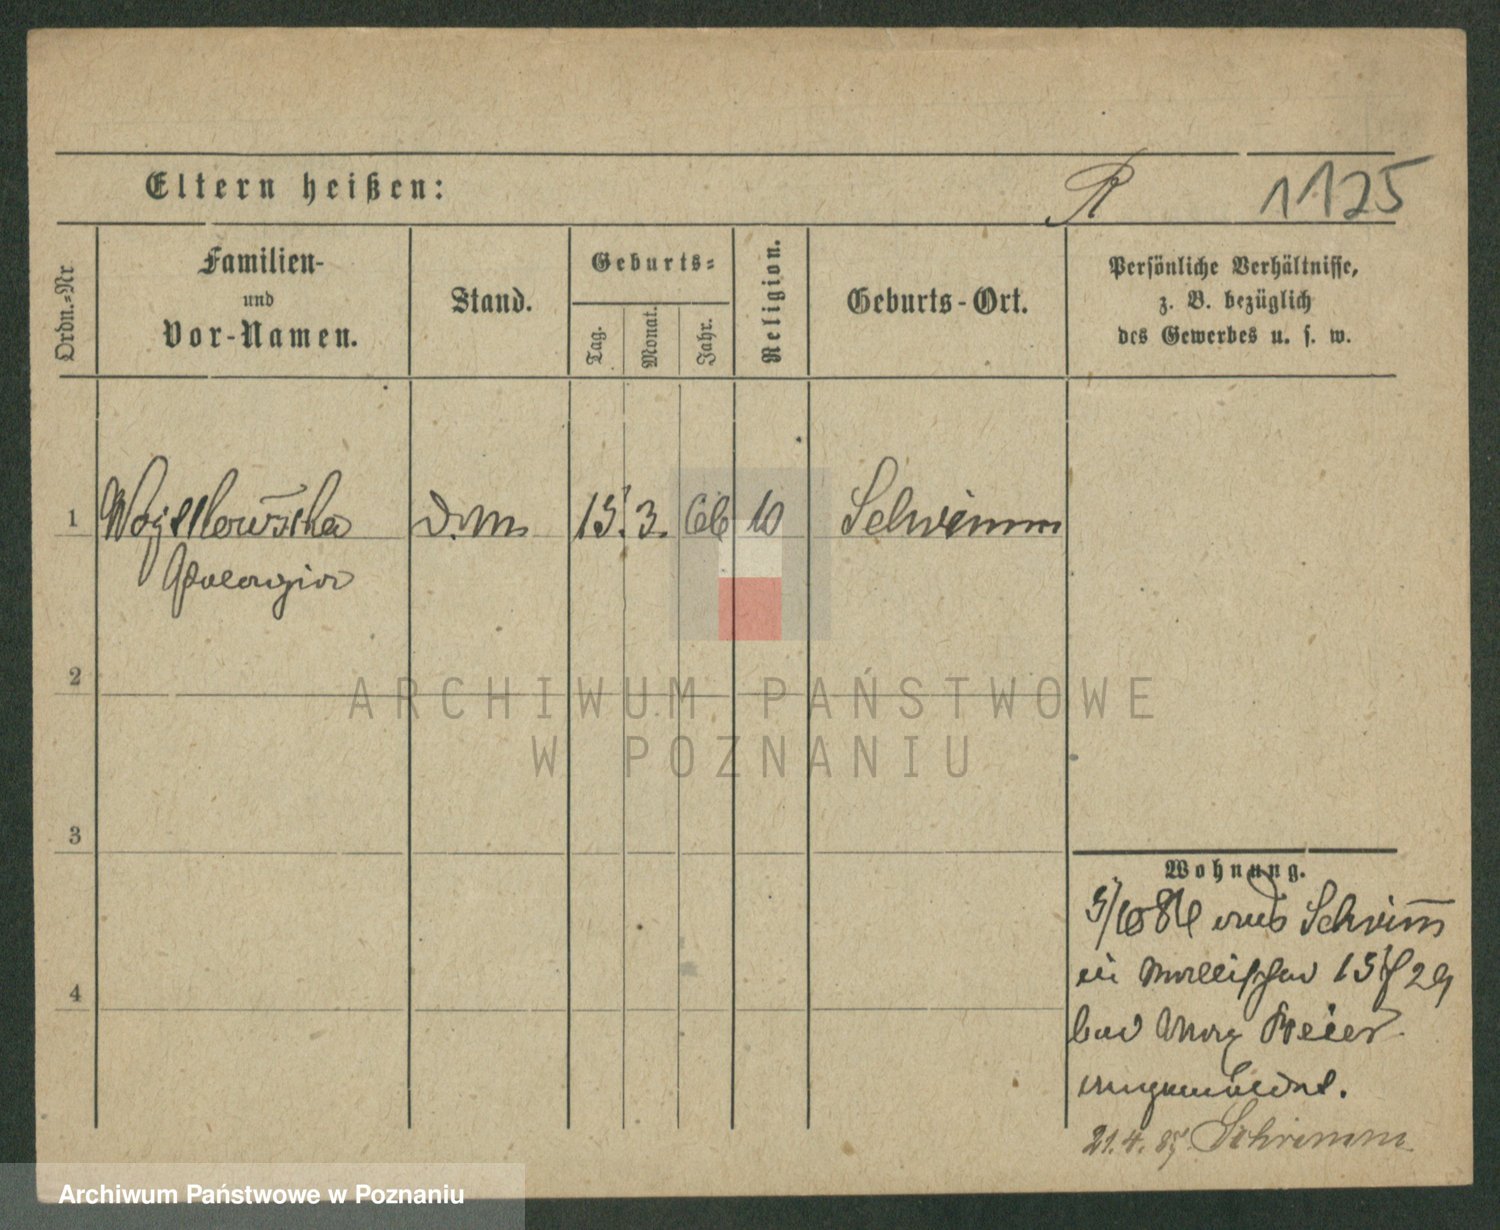 Eltern heißen:
R
1125
Ordn.-Nr
Familien-
und
Vor-Namen.
Stand.
Geburts-
Tag.
Monat.
Jahr.
Religion.
Geburts-Ort.
Persönliche Verhältnisse,
z. B. bezüglich
des Gewerbes u. s. w.
1
D.M. 15. 3. 66 Schrimm
2
3
4
Wohnung.
aus Schrim̅
in
bei
angemeldet.
21.4. Schrimm
ARCHIWUM PAŃSTWOWE
W POZNANIU
Archiwum Państwowe w Poznaniu